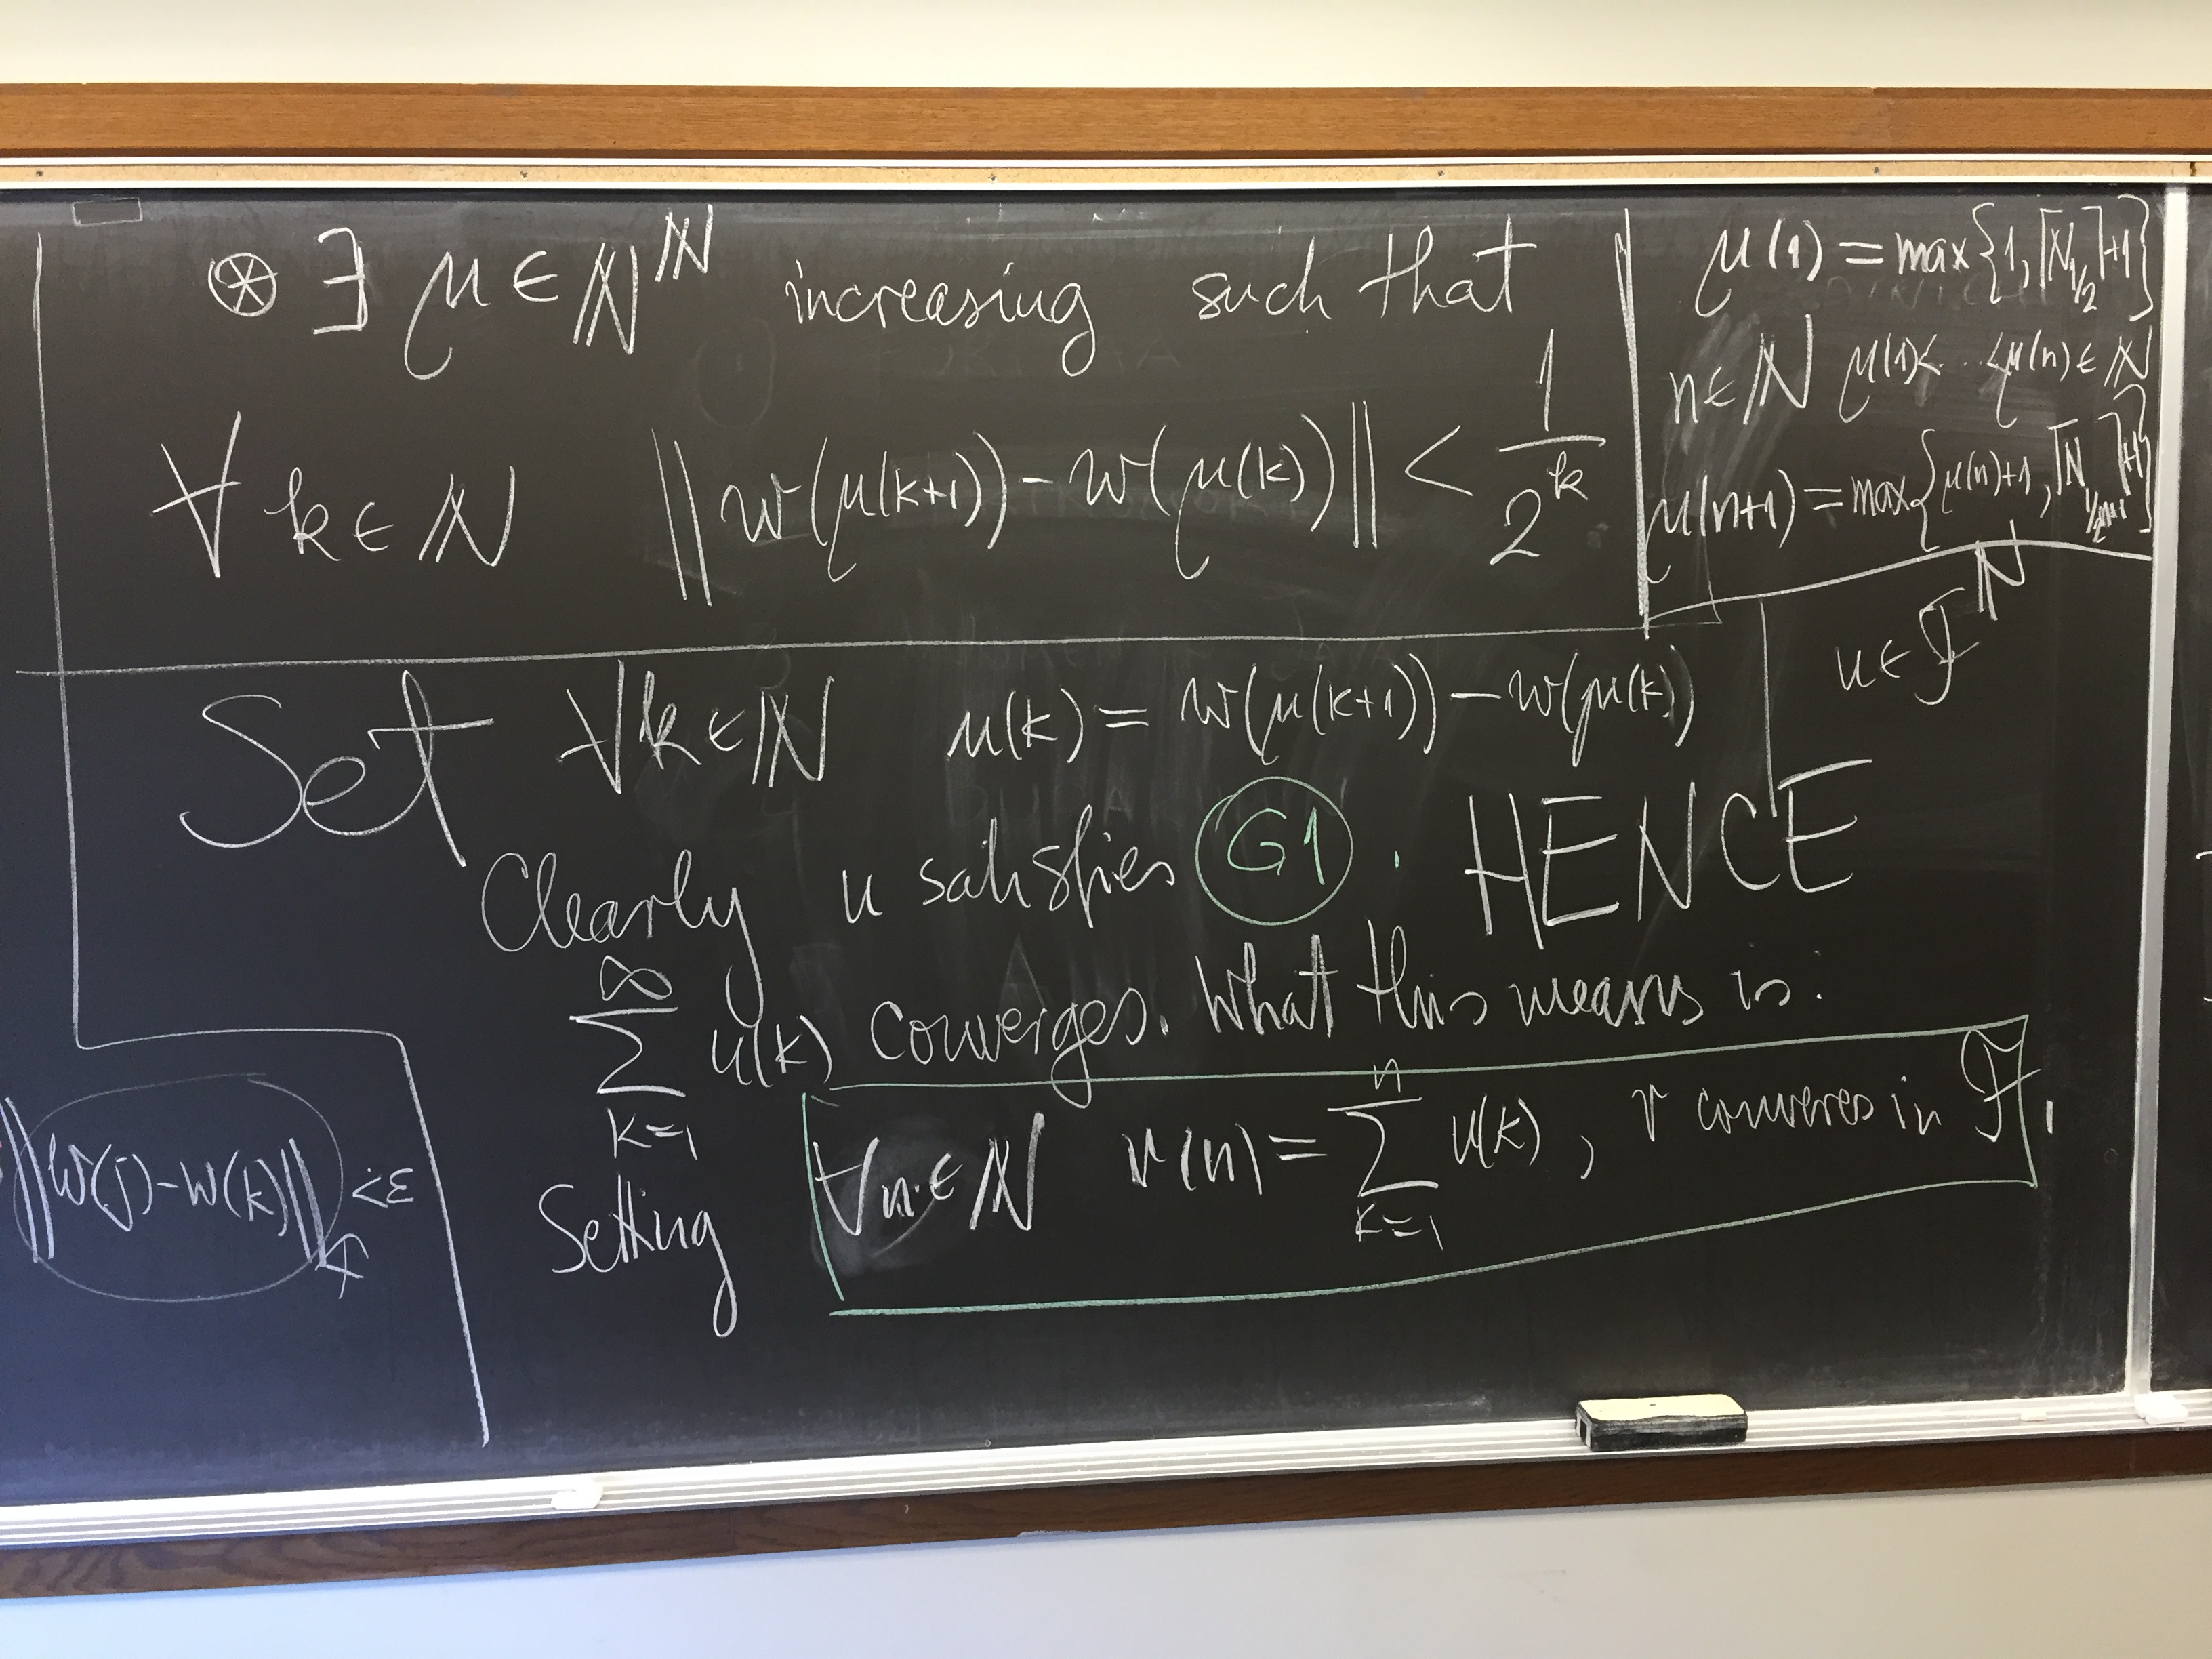 ⊛ ∃ μ ∈ ℕ^ℕ increasing such that
∀ k ∈ ℕ ‖w(μ(k+1)) - w(μ(k))‖ < 1/2^k
μ(1) = max{1, ⌈N_{1/2}⌉+1}
n ∈ ℕ μ(1)< ... <μ(n) ∈ ℕ
μ(n+1) = max{μ(n)+1, ⌈N_{1/2^{n+1}}⌉+1}
u ∈ ℱ^ℕ
Set ∀ k ∈ ℕ u(k) = w(μ(k+1)) - w(μ(k))
Clearly u satisfies G1. HENCE
∑_{k=1}^{∞} u(k) converges. What this means is:
Setting ∀ n ∈ ℕ v(n) = ∑_{k=1}^{n} u(k), v converes in ℱ.
‖w(j)-w(k)‖_ℱ <ε